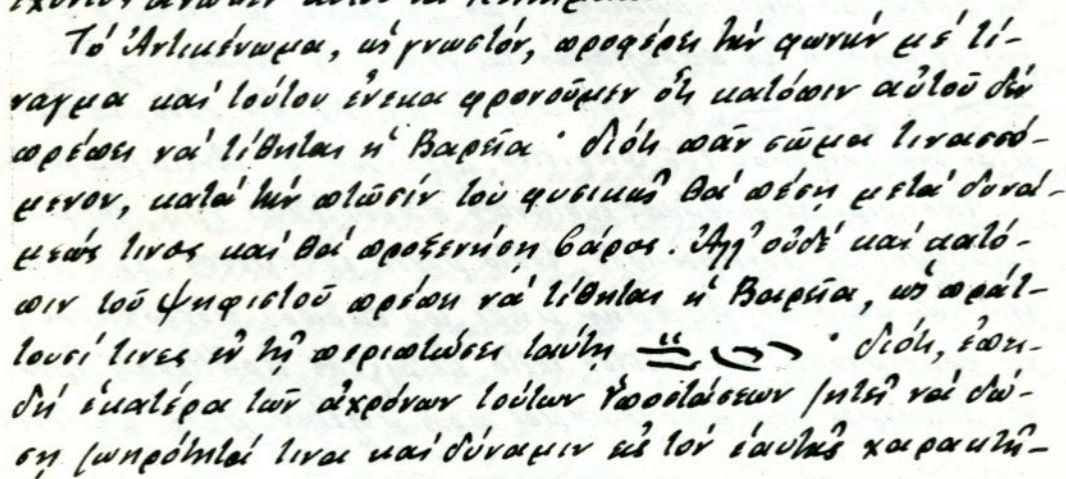 Τό Ἀντικένωμα, ὡς γνωστόν, προφέρει τήν φωνήν μέ τί-
ναγμα καί τούτου ἕνεκα φρονοῦμεν ὅτι κατόπιν αὐτοῦ δέν
πρέπει νά τίθηται ἡ Βαρεῖα · διότι πᾶν σῶμα τινασσό-
μενον, κατά τήν πτῶσίν του φυσικῶς θά πέσῃ μετά δυνά-
μεώς τινος καί θά προξενήσῃ βάρος. Ἀλλ' οὐδέ καί κατό-
πιν τοῦ ψηφιστοῦ πρέπει νά τίθηται ἡ Βαρεῖα, ὡς πράτ-
τουσί τινες ἐν τῇ περιπτώσει ταύτῃ · διότι, ἐπει-
δή ἑκατέρα τῶν ἀχρόνων τούτων ὑποστάσεων ζητεῖ νά δώ-
σῃ ζωηρότητά τινα καί δύναμιν εἰς τόν ἑαυτῆς χαρακτῆ-